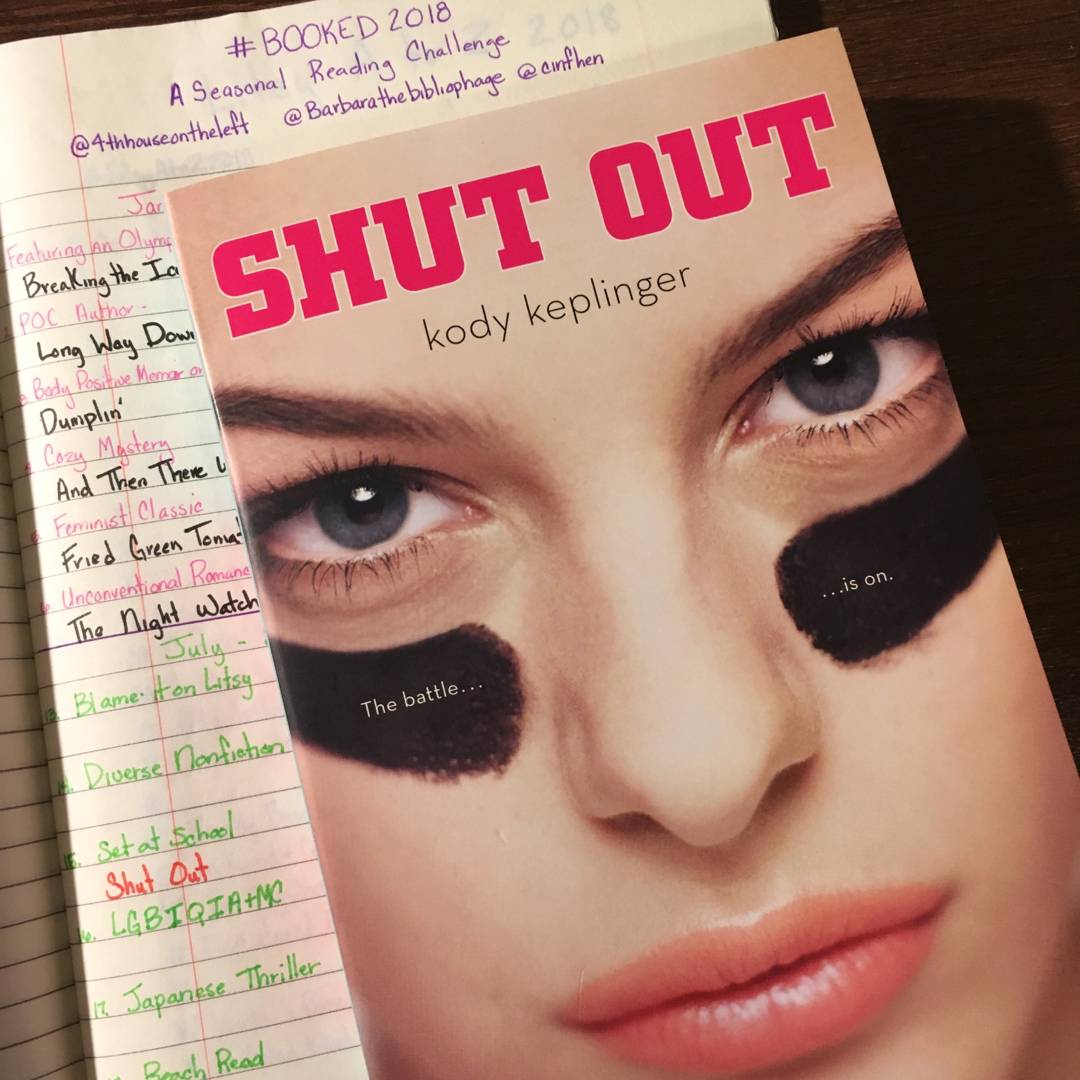 # BOOKED 2018
A Seasonal Reading Challenge
@4thhouseontheleft @Barbarathebibliophage @cinfhen
Jan
Featuring An Olymp
Breaking the Ic
POC Author -
Long Way Down
Body Positive Memoir or
Dumplin'
Cozy Mystery
And Then There W
Feminist Classic
Fried Green Toma
Unconventional Romance
The Night Watch
July -
13. Blame it on Litsy
14. Diverse Nonfiction
15. Set at School
Shut Out
16. LGBTQIA+MC
17. Japanese Thriller
Beach Read
SHUT OUT
kody keplinger
The battle...
...is on.